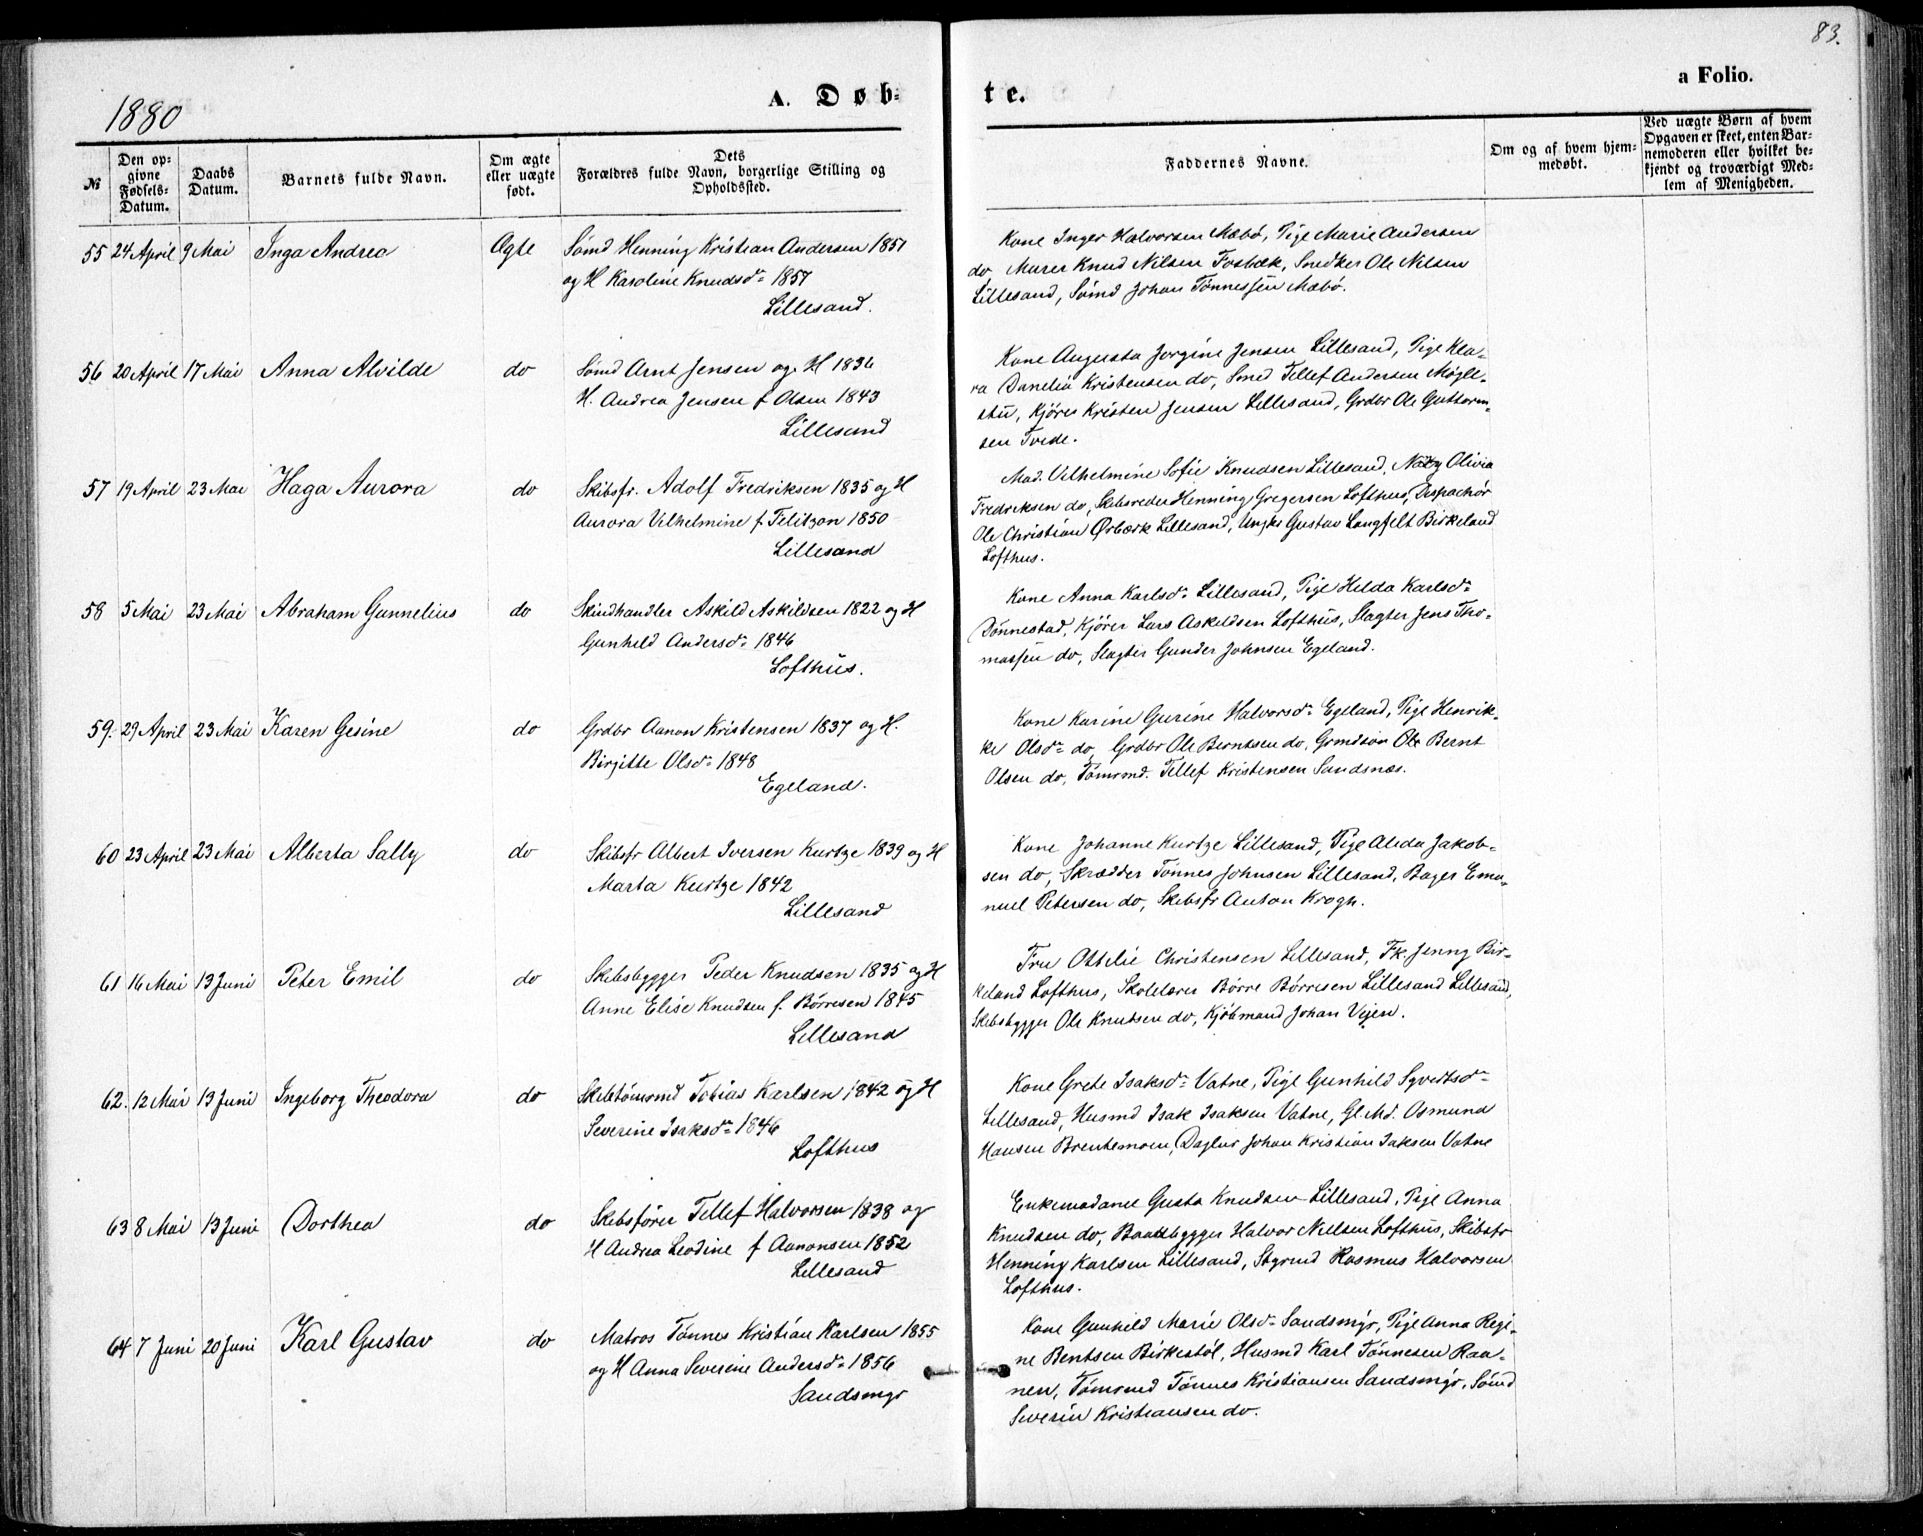 83.
a Folio.
1880
A. Døb-
te.
№
Den op-
givne
Fødsels-
Datum.
Daabs
Datum.
Barnets fulde Navn.
Om ægte
eller uægte
født.
Dets
Forældres fulde Navn, borgerlige Stilling og
Opholdssted.
Faddernes Navne.
Om og af hvem hjem-
medøbt.
Ved uægte Børn af hvem
Opgaven er skeet, enten Bar-
nemoderen eller hvilket be-
kjendt og troværdigt Med-
lem af Menigheden.
55 24 April 9 Mai Inga Andrea Ægte Sømd Henning Kristian Andersen 1851
og H Karoline Knudsdr 1857
Lillesand.
Kone Inger Halvorsen Mæbø, Pige Marie Andersen
do Murer Knud Nilsen Fosbæk, Snedker Ole Nilsen
Lillesand, Sømd Johan Tønnessen Mæbø.
56 20 April 17 Mai Anna Alvilde do Sømd Arnt Jensen og H 1836
H. Andrea Jensen f Olsen 1843
Lillesand
Kone Augusta Jørgine Jensen Lillesand, Pige Kla-
ra Danelia Kristensen do, Smed Tellef Andersen Møgle-
stu, Kjører Kristen Jensen Lillesand, Grdbr Ole Guttorm-
sen Tvede.
57 19 April 23 Mai Haga Aurora do Skibsfr. Adolf Fredriksen 1835 og H
Aurora Vilhelmine f. Felitzon 1850
Lillesand
Mad. Vilhelmine Sofie Knudsen Lillesand, Olivia
Fredriksen do, Skibsreder Henning Gregersen Lofthus, Dispachør
Ole Christian Ørbæck Lillesand, Ungk Gustav Langfelt Birkeland
Lofthus.
58 5 Mai 23 Mai Abraham Gunnelius do Skindhandler Askild Askildsen 1822 og H
Gunhild Andersdr 1846
Lofthus.
Kone Anna Karlsdr Lillesand, Pige Helda Karlsdr
Dønnestad, Kjører Lars Askildsen Lofthus, Slagter Jens Tho-
massen do, Slagter Gunder Johnsen Egeland.
59. 29 April 23 Mai Karen Gesine do Grdbr Aanon Kristensen 1837 og H.
Birgitte Olsdr 1848
Egeland.
Kone Karine Gurine Halvorsdr Egeland, Pige Henrik-
ke Olsdr do, Grdbr Ole Berntsen do, Grmdsøn Ole Bernt
Olsen do, Tømrmd. Tellef Kristensen Sandsnæs.
60 23 April 23 Mai Alberta Sally do Skibsfr Albert Iversen Kurtze 1839 og H
Marta Kurtze 1842
Lillesand
Kone Johanne Kurtze Lillesand, Pige Alida Jakob-
sen do, Skrædder Tønnes Johnsen Lillesand, Bager Ema-
nuel Petersen do, Skibsfr Anton Krogh.
61 16 Mai 13 Juni Peter Emil do Skibsbygger Peder Knudsen 1835 og H
Anne Elise Knudsen f. Børresen 1845
Lillesand
Fru Ottilie Christensen Lillesand, Fk. Jenny Bir-
keland Lofthus, Skolelærer Børre Børresen Lillesand Lillesand,
Skibsbygger Ole Knutsen do, Kjøbmand Johan Vejen.
62. 12 Mai 13 Juni Ingeborg Theodora do Skibstømrmd Tobias Karlsen 1842 og H
Severine Isaksdr 1846
Lofthus
Kone Grete Isaksdr Vatne, Pige Gunhild Syvertsdr
Lillesand, Husmd Isak Isaksen Vatne, Gl. Md. Osmund
Hansen Brentemoen, Daglnr Johan Kristian Isaksen Vatne
63 8 Mai 13 Juni Dorthea do Skibsfører Tellef Halvorsen 1838 og
H Andrea Leodine f Aanonsen 1852
Lillesand
Enkemadame Gusta Knudsen Lillesand, Pige Anna
Knudsen do, Baadbygger Halvor Nielsen Lofthus, Skibsfr
Henning Karlsen Lillesand, Styrmd Rasmus Halvorsen
Lofthus.
64 7 Juni 20 Juni Karl Gustav do Matros Tønnes Kristian Karlsen 1855
og H Anna Severine Andersdr 1856
Sandsmyr
Kone Gunhild Marie Olsdr Sandsmyr, Pige Anna Regi-
ne Bentsen Birkestøl, Husmd Karl Tønnesen Raa-
nen, Tømrmd Tønnes Kristiansen Sandsmyr, Sømd
Severin Kristiansen do.